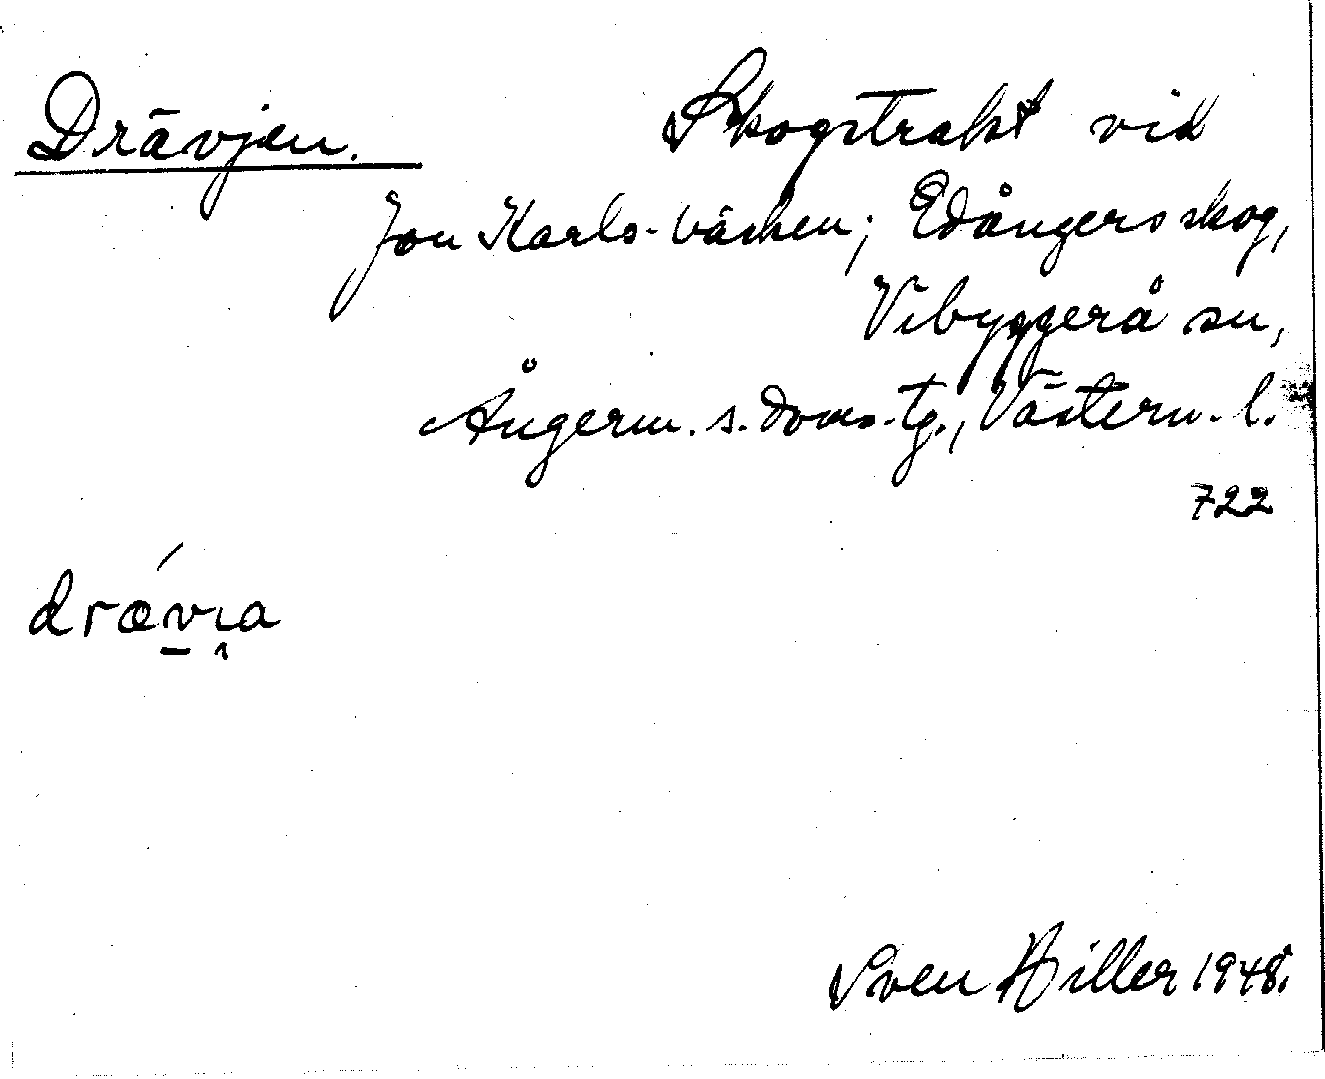 Drävjen. Skogstrakt vid
Jon Karls-bäcken; Edångersskog,
Vibyggerå sn,
Ångerm. s. doms.-tg., Västern. l.
722
drǽvı̯a
Sven Hiller 1948.